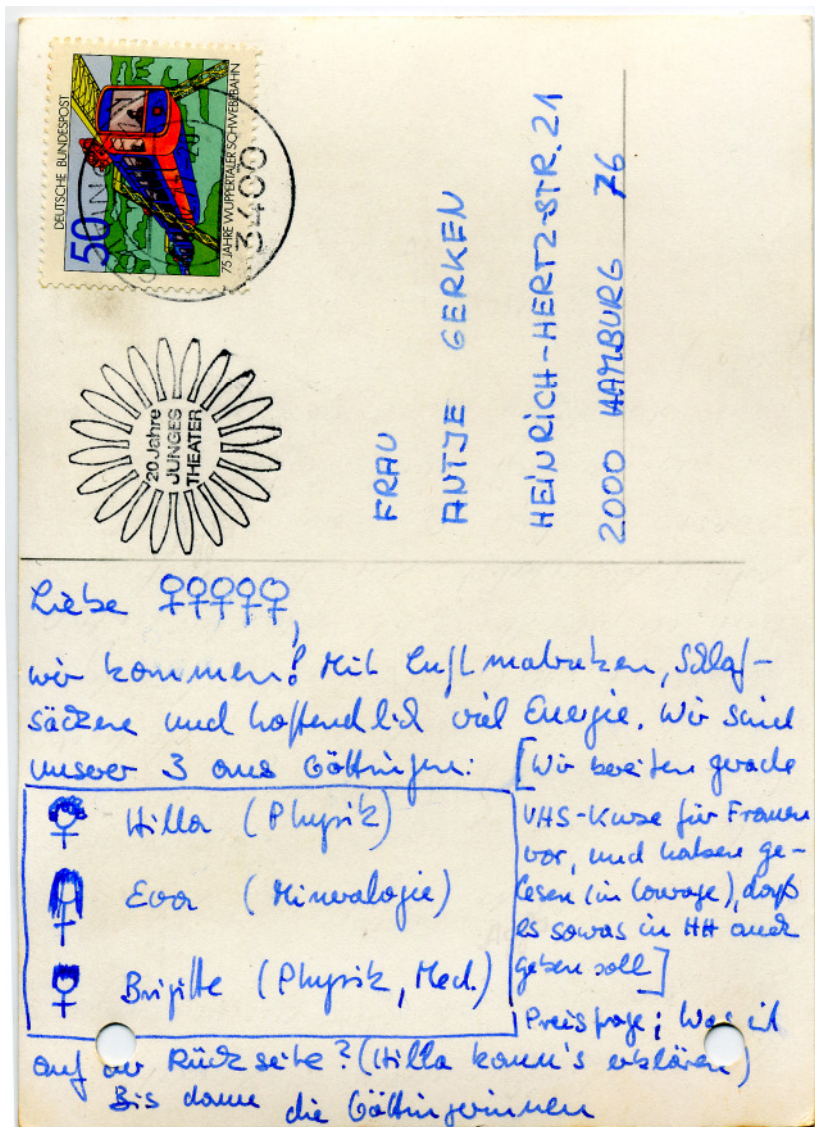 DEUTSCHE BUNDESPOST
50
75 JAHRE WUPPERTALER SCHWEBEBAHN
3400
20 Jahre
JUNGES
THEATER
FRAU
ANTJE GERKEN
HEINRICH-HERTZ-STR. 21
2000 HAMBURG 76
Liebe ♀♀♀♀♀,
wir kommen! Mit Luftmatratzen, Schlaf-
säcken und hoffendlich viel Energie. Wir sind
unserer 3 aus Göttingen:
Hilla (Physik)
Eva (Mineralogie)
Brigitte (Physik, Med.)
[Wir bereiten gerade
VHS-Kurse für Frauen
vor, und haben ge-
lesen (in Courage), daß
es sowas in HH auch
geben soll]
Preisfrage: Was ist
auf der Rückseite? (Hilla kann's erklären)
Bis dann die Göttingerinnen